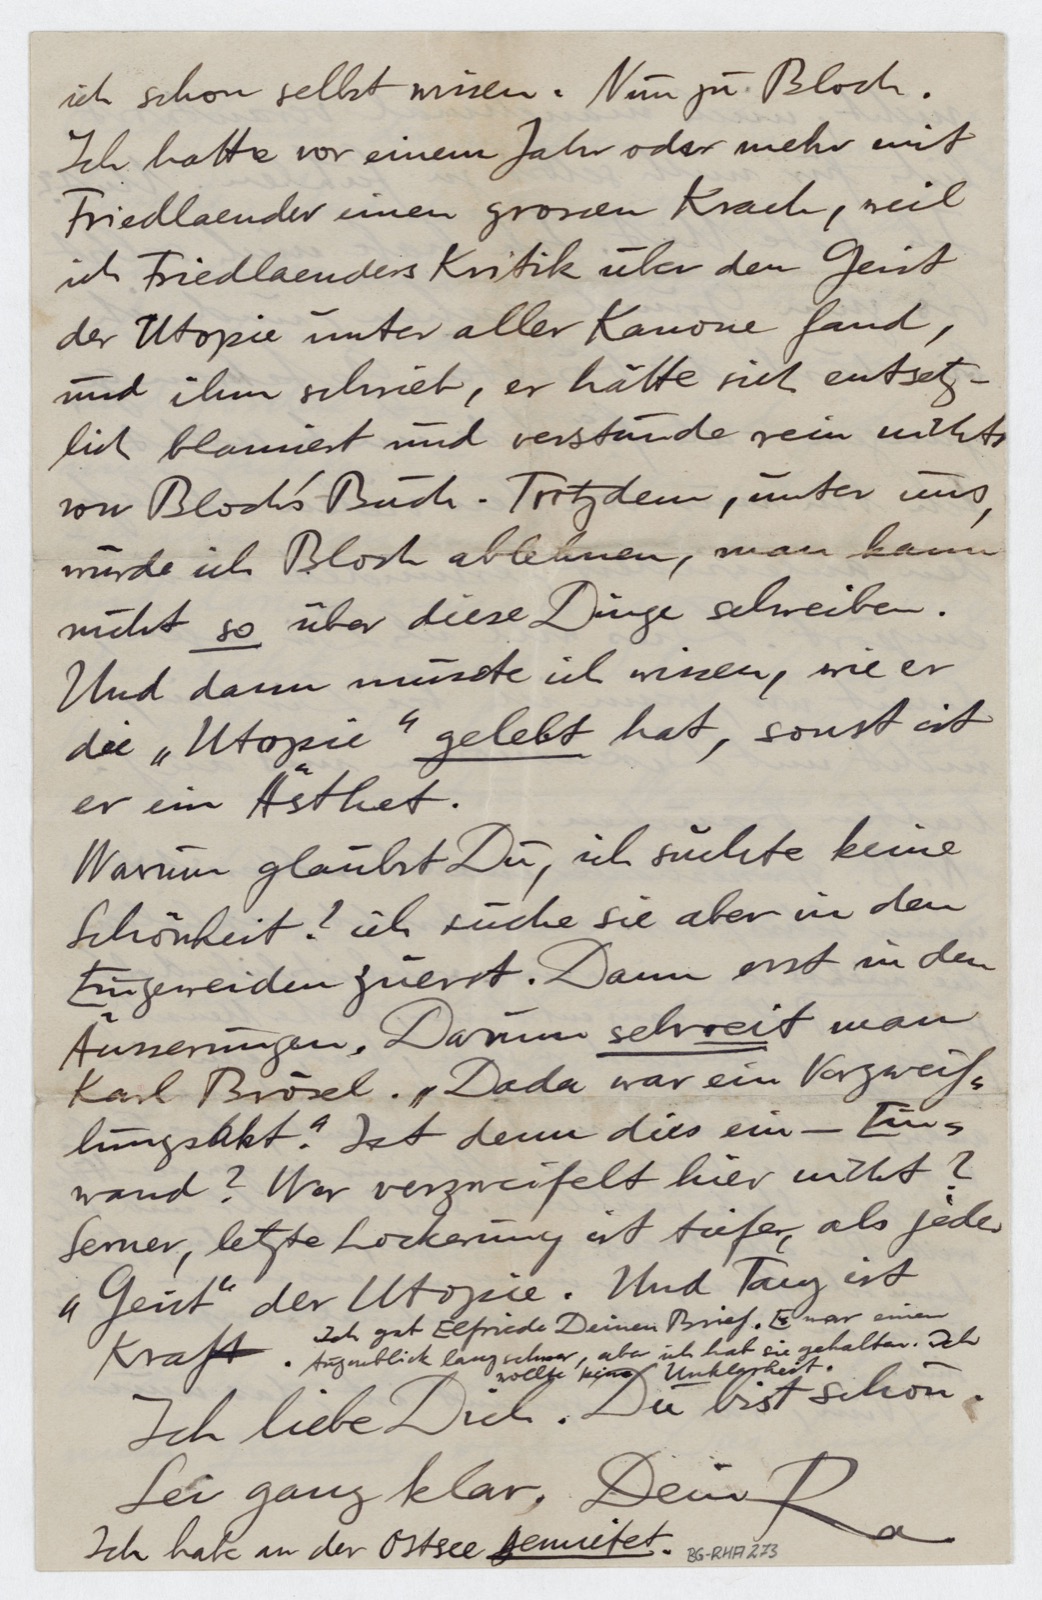 ich schon selbst wissen. Nun zu Bloch.
Ich hatte vor einem Jahr oder mehr mit
Friedlaender einen grossen Krach, weil
ich Friedlaenders Kritik über den Geist
der Utopie unter aller Kanone fand,
und ihm schrieb, er hätte sich entsetz-
lich blamiert und verstünde rein nichts
von Bloch's Buch. Trotzdem, unter uns,
würde ich Bloch ablehnen, man kann
nicht so über diese Dinge schreiben.
Und dann müsste ich wissen, wie er
die „Utopie“ gelebt hat, sonst ist
er ein Ästhet.
Warum glaubst Du, ich suchte keine
Schönheit? ich suche sie aber in den
Eingeweiden zuerst. Dann erst in den
Äusserungen. Darum schreit man
Karl Brösel. „Dada war ein Verzweif-
lungsakt.“ Ist denn dies ein — Ein-
wand? Wer verzweifelt hier nicht?
Serner, letzte Lockerung ist tiefer, als jeder
„Geist“ der Utopie. Und Tanz ist
Kraft.
Ich gab Elfriede Deinen Brief. Es war einen
Augenblick lang schwer, aber ich hab sie gehalten. Ich
wollte keine Unklarheit.
Ich liebe Dich. Du bist schön.
Sei ganz klar. Dein Ra
Ich habe an der Ostsee gemietet.
BG-RHA 273